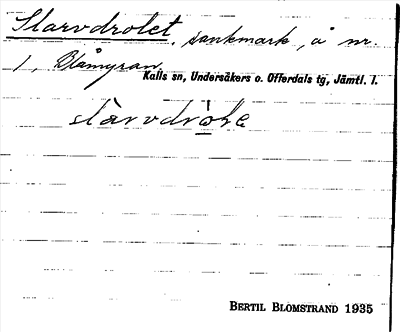 Slarvdrolet, sankmark, å nr.
1, Blåmyran.
Kalls sn, Undersåkers o. Offerdals tg, Jämtl. l.
slàrvdròḷe
BERTIL BLOMSTRAND 1935